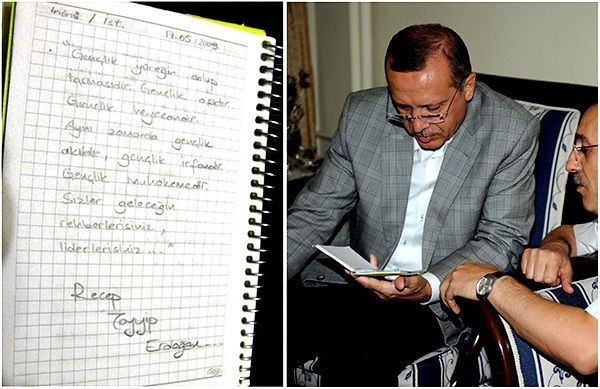 İnönü / İst. 17.05/2009
"Gençlik yüreğin dolup
taşmasıdır. Gençlik aşktır.
Gençlik heyecandır.
Aynı zamanda gençlik
akıldır, gençlik irfandır.
Gençlik muhakemedir.
Sizler geleceğin
rehberlerisiniz,
liderlerisiniz..."
Recep
Tayyip
Erdoğan....